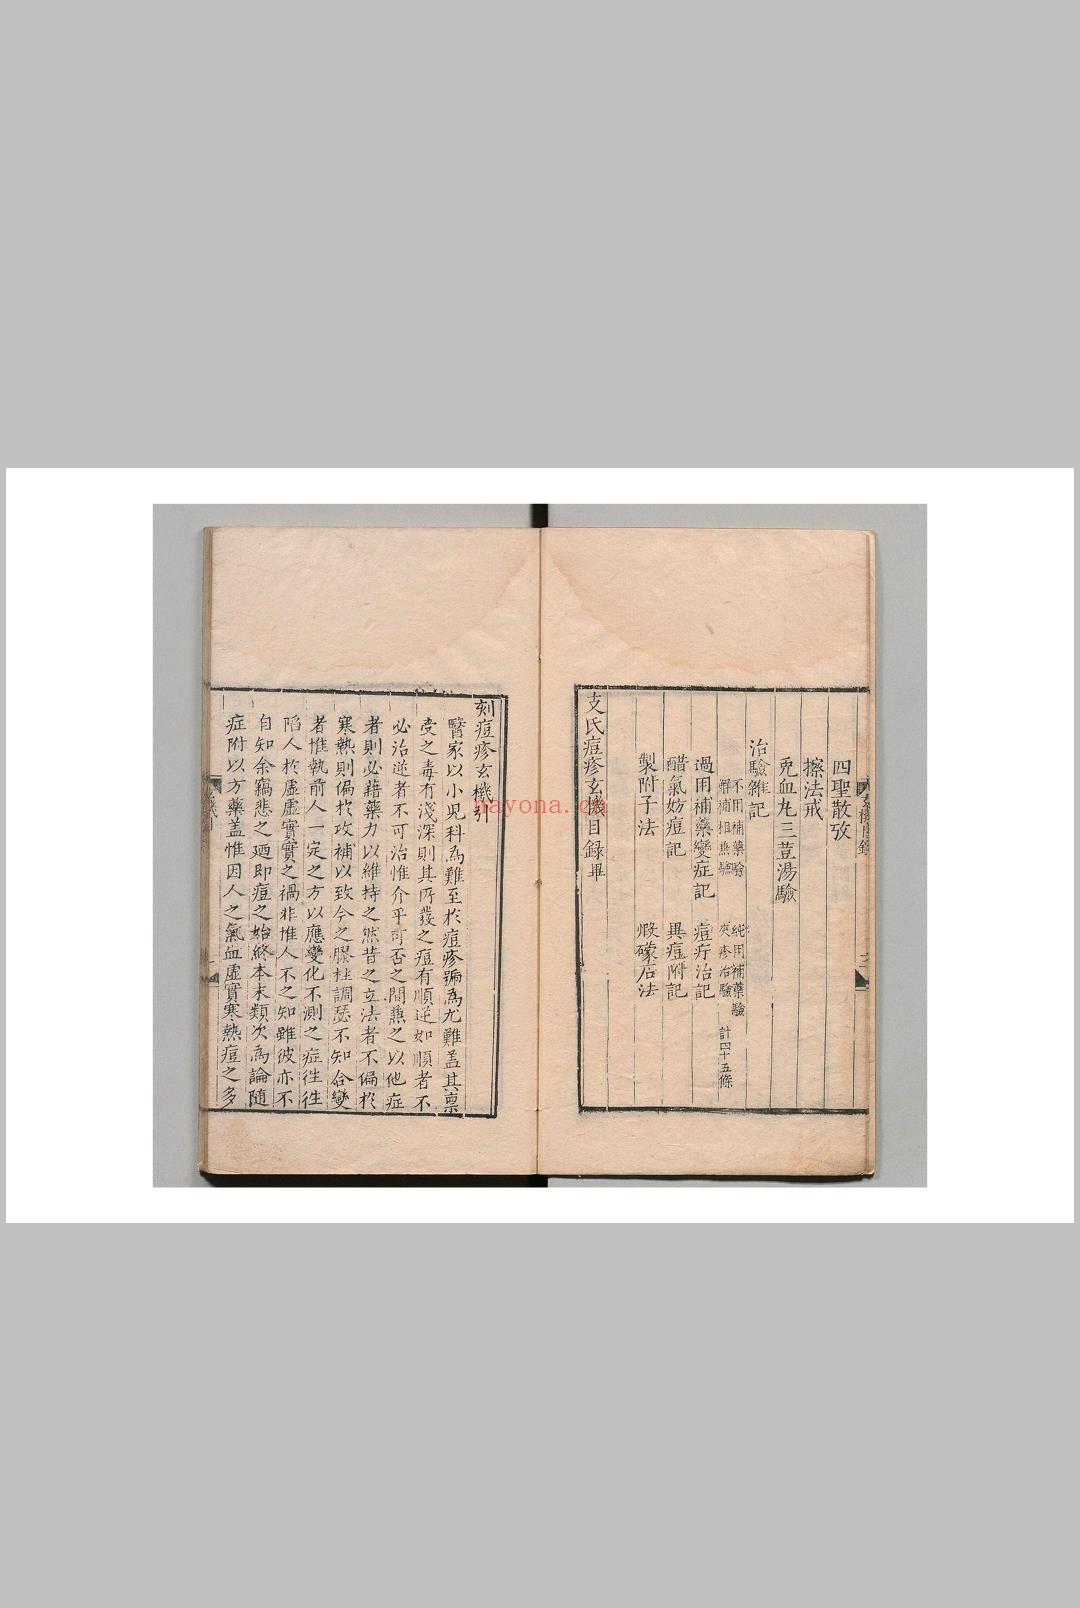 四聖散攷
擦法戒
兎血丸三荳湯驗
治驗雜記
不用補藥驗 純用補藥驗
解補相兼驗 夾疹治驗 計四十五條
過用補藥變症記 痘疔治記
醋氣妨痘記 異痘附記
製附子法 煅礞石法
支氏痘疹玄機目録畢
刻痘疹玄機引
醫家以小兒科為難至扵痘疹號為尤難盖其禀
受之毒有淺深則其所發之痘有順逆如順者不
必治逆者不可治惟介乎可否之間兼之以他症
者則必藉藥力以維持之然昔之立法者不偏扵
寒熱則偏扵攻補以致今之膠柱調瑟不知合變
者惟執前人一定之方以應變化不測之症徃徃
陷人扵虛虛實實之禍非惟人不之知雖彼亦不
自知余竊悲之廼即痘之始終本末類次為論隨
症附以方藥盖惟因人之氣血虛實寒熱痘之多
nayona.cn